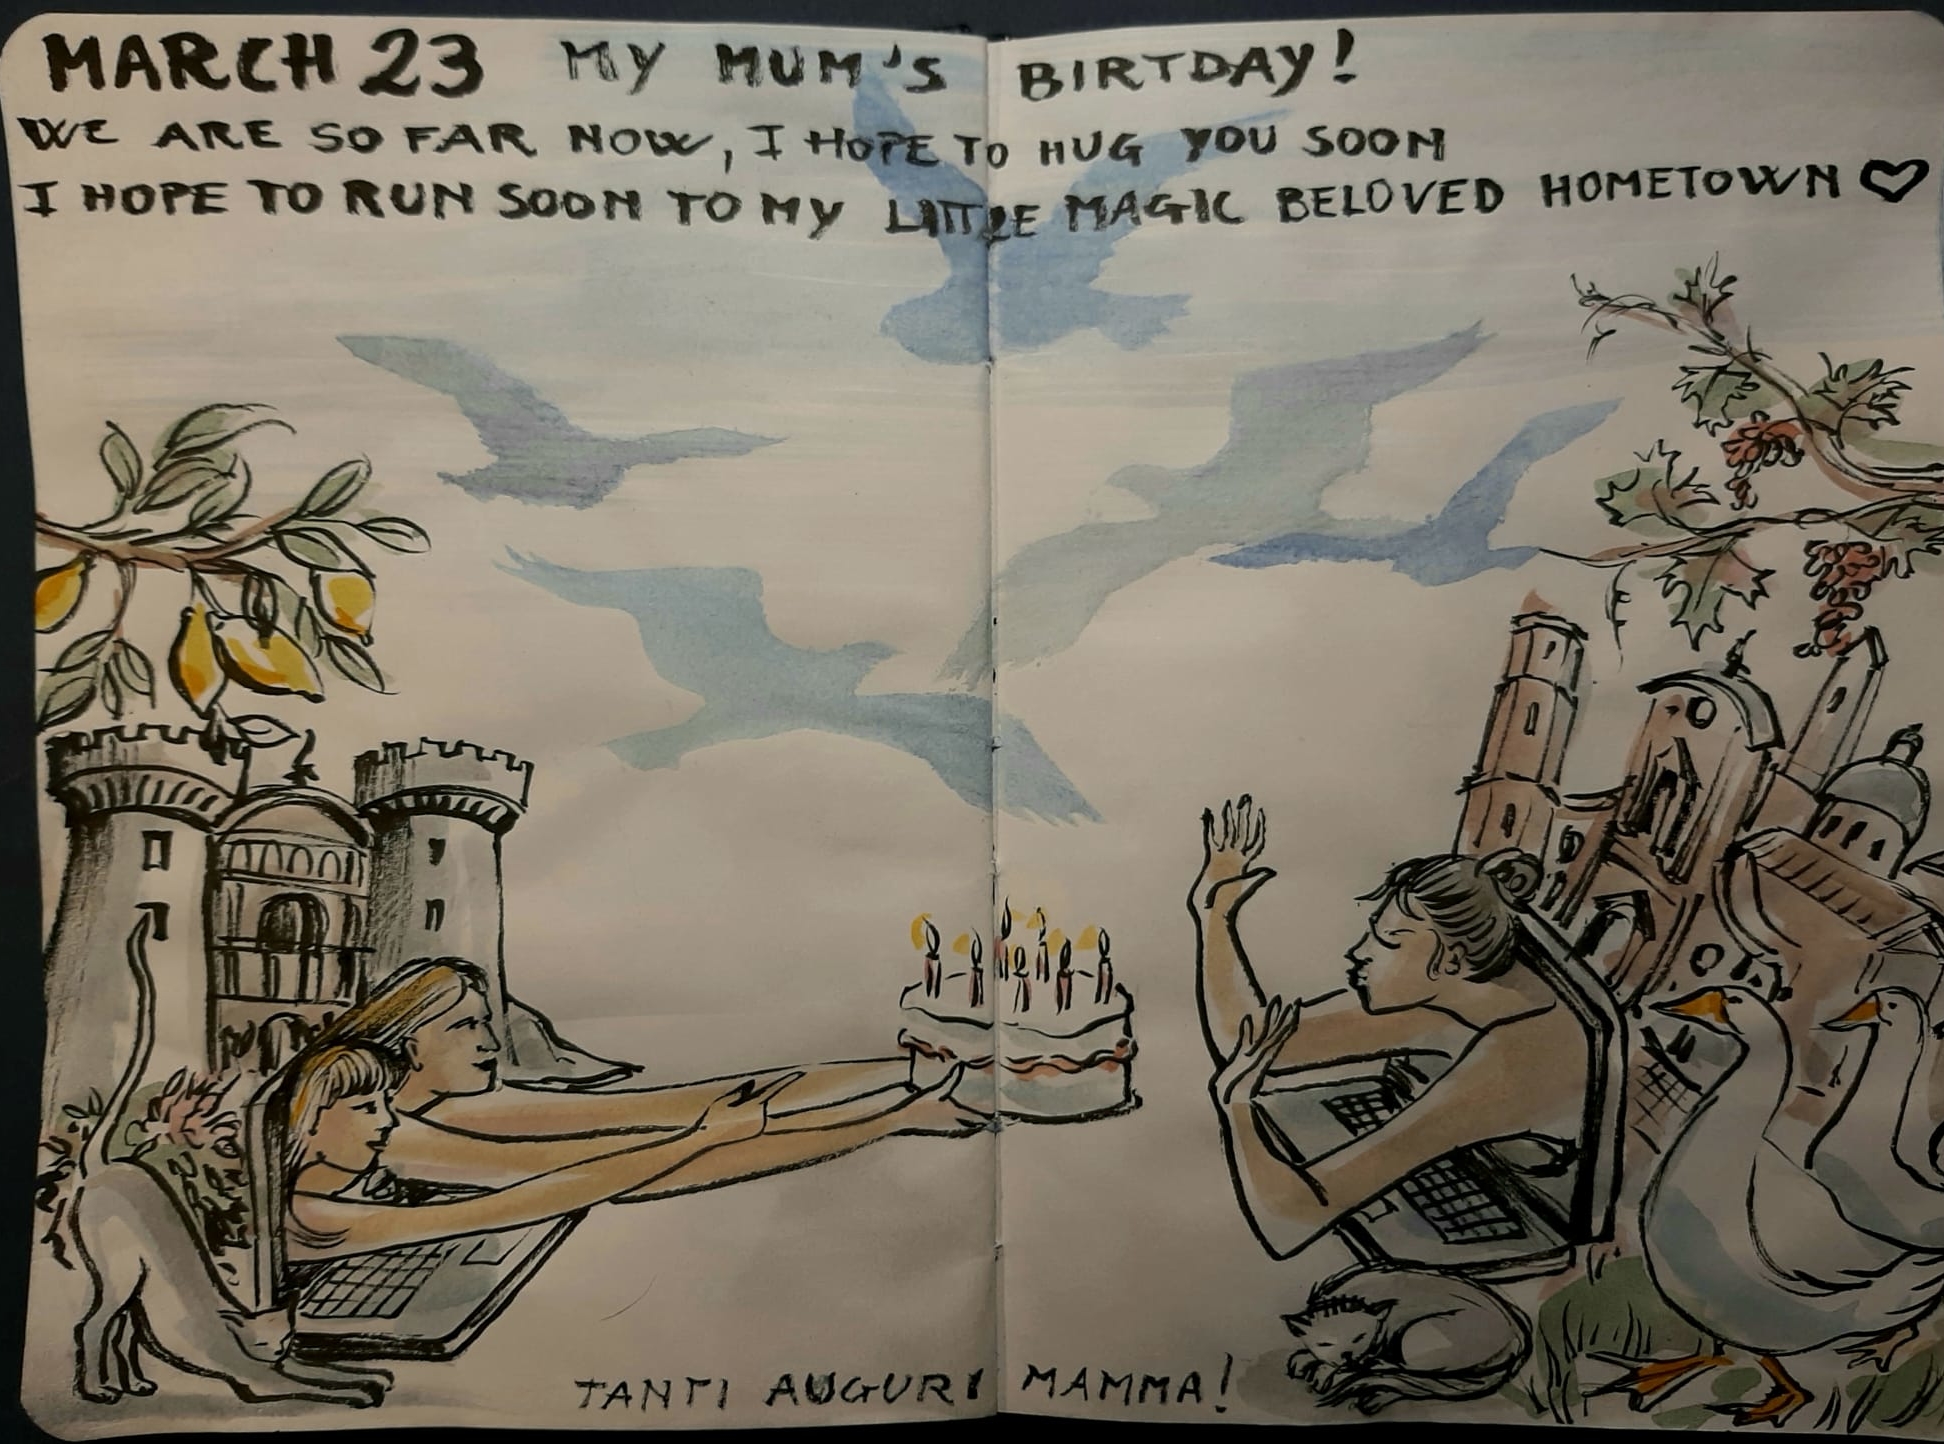 MARCH 23 MY MUM'S BIRTDAY!
WE ARE SO FAR NOW, I HOPE TO HUG YOU SOON
I HOPE TO RUN SOON TO MY LITTLE MAGIC BELOVED HOMETOWN ♡
TANTI AUGURI MAMMA!